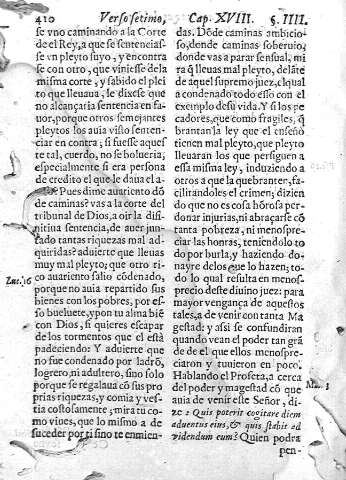 410 Verso setimo, Cap. XVIII. §. IIII.
se vno caminando a la Corte
del Rey, a que se sentenciasse
vn pleyto suyo, y encontrasse
con otro, que viniesse de la
misma corte, y sabido el pleito
que lleuaua, le dixesse que
no alcançaria sentencia en fauor,
porque otros semejantes
pleytos los auia visto sentenciar
en contra; si fuesse aqueste
tal, cuerdo, no se bolueria;
especialmente si era persona
de credito el que le daua el auiso?
Pues dime auariento dõde
caminas? vas a la corte del
tribunal de Dios, a oir la difinitiua
sentencia, de auer juntado
tantas riquezas mal adquiridas?
aduierte que lleuas
muy mal pleyto; que otro rico
auariento salio cõdenado,
Luc. 16
porque no auia repartido sus
bienes con los pobres, por esso
bueluete, y pon tu alma biẽ
con Dios, si quieres escapar
de los tormentos que el està
padeciendo: Y aduierte que
no fue condenado por ladrõ,
logrero, ni adultero, sino solo
porque se regalaua cõ sus proprias
riquezas, y comia y vestia
costosamente; mira tu como
viues, que lo mismo a de
suceder por ti sino te enmien-
das. Dõde caminas ambicioso,
donde caminas soberuio,
donde vas a parar sensual, mira
q̃ lleuas mal pleyto, delãte
de aquel supremo juez, el qual
a condenado todo esso con el
exemplo de su vida. Y si los pecadores,
que como fragiles, q̃
brantan la ley que el enseñó
tienen mal pleyto, que pleyto
lleuaran los que persiguen a
essa misma ley, induziendo a
otros a que la quebranten, facilitandoles
el crimen; diziendo
que no es cosa hõrosa perdonar
injurias, ni abraçarse cõ
tanta pobreza, ni menospreciar
las honras, teniendolo todo
por burla, y haziendo donayre
delos que lo hazen; todo
lo qual resulta en menosprecio
deste diuino juez: para
mayor vengança de aquestos
tales, a de venir con tanta Magestad:
y assi se confundiran
quando vean el poder tan grãde
de el que ellos menospreciaron
y tuuieron en poco.
Hablando el Profeta, a cerca
del poder y magestad cõ que
auia de venir este Señor, dize:
Quis poterit cogitare diem
aduentus eius, & quis stabit ad
videndum eum? Quien podra
pen-